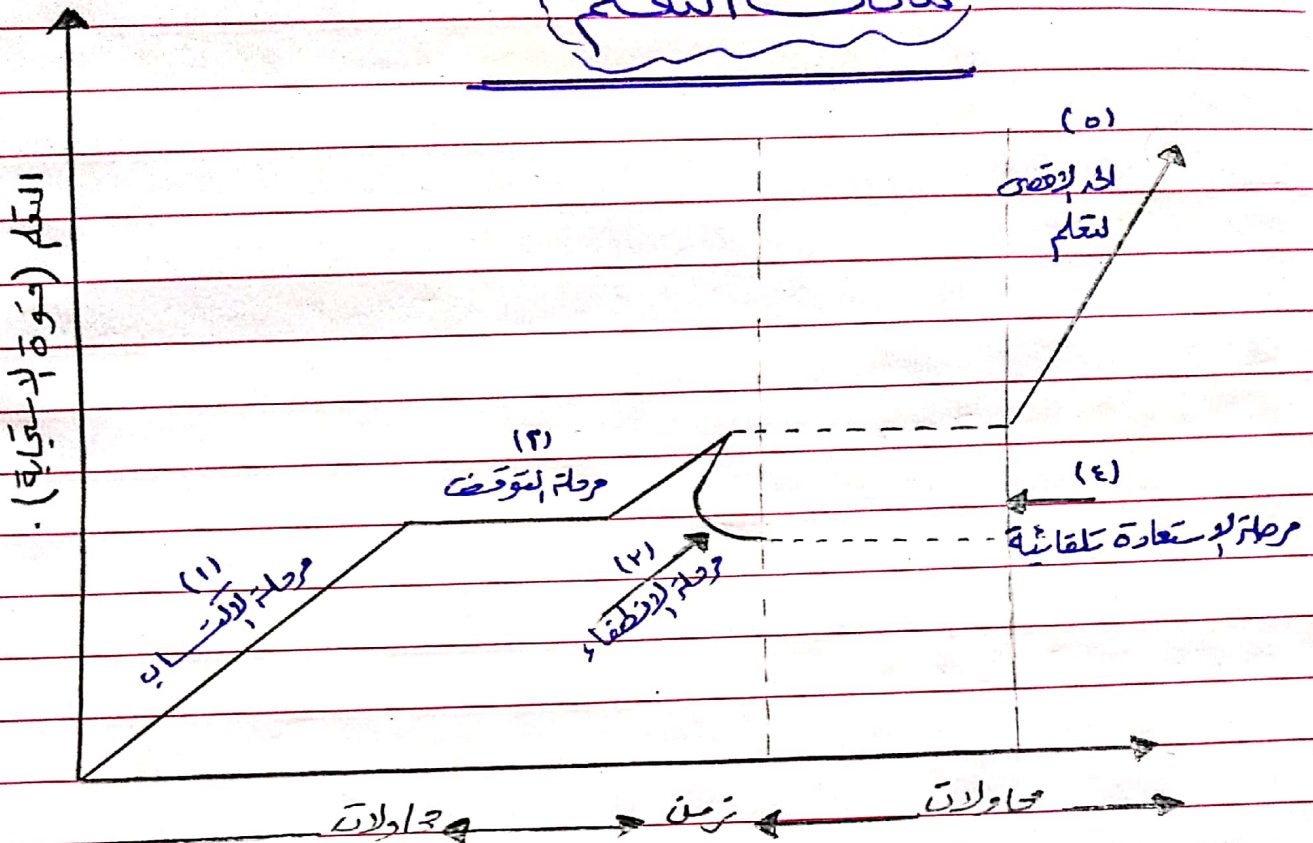 التعلم
التعلم (قوة الاستجابة).
(٥)
الحد الاقصى
لتعلم
(٣)
مرحلة التوقف
(٤)
مرحلة الاستعادة تلقائية
(١)
مرحلة الاكتساب
(٢)
مرحلة الانطفاء
محاولات
زمن
محاولات